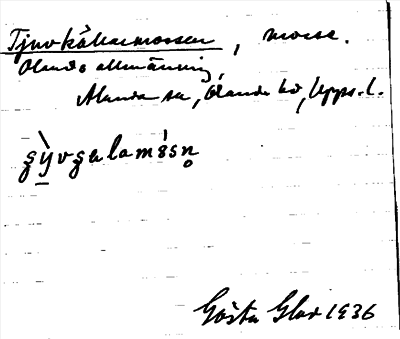 Tjuvkällarmossen, mosse.
Olands allmänning,
Alunda sn, Olands hd, Upps. l.
Gösta Glad 1936